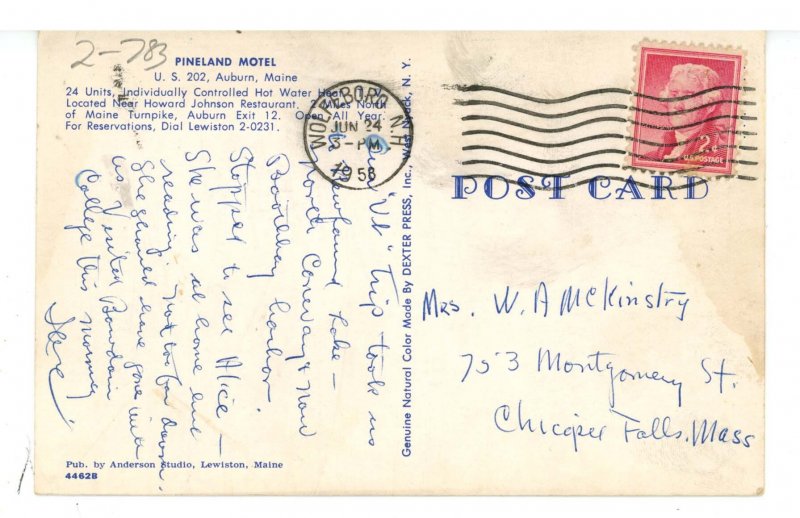 2-783
PINELAND MOTEL
U. S. 202, Auburn, Maine
24 Units, Individually Controlled Hot Water Heat, T.V.
Located Near Howard Johnson Restaurant. 2 Miles North
of Maine Turnpike, Auburn Exit 12. Open All Year.
For Reservations, Dial Lewiston 2-0231.
Our "Vt" Trip took us
to Newfound Lake -
North Conway & now
Boothbay harbor.
Stopped to see Alice -
She was at home and
reading, not too far down.
She should have gone with
us Visited Bowdoin
College this morning
Pub. by Anderson Studio, Lewiston, Maine
4462B
Genuine Natural Color Made By DEXTER PRESS, Inc., West Nyack, N. Y.
WOLFEBORO N.H.
JUN 24
3-PM
1958
2¢
U.S. POSTAGE
POST CARD
Mrs. W. A McKinstry
753 Montgomery St.
Chicopee Falls, Mass